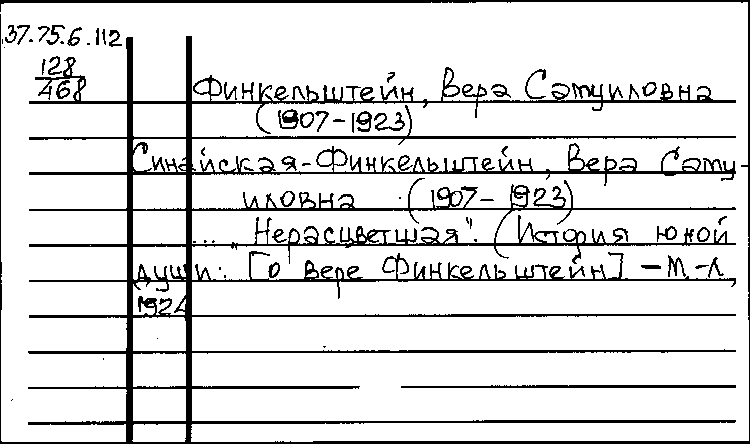 37.75.6.112
128
468
Финкельштейн, Вера Самуиловна
(1907-1923)
Синайская-Финкельштейн, Вера Саму-
иловна (1907-1923)
... "Нерасцветшая". (История юной
души: [о Вере Финкельштейн] - М-Л,
1924